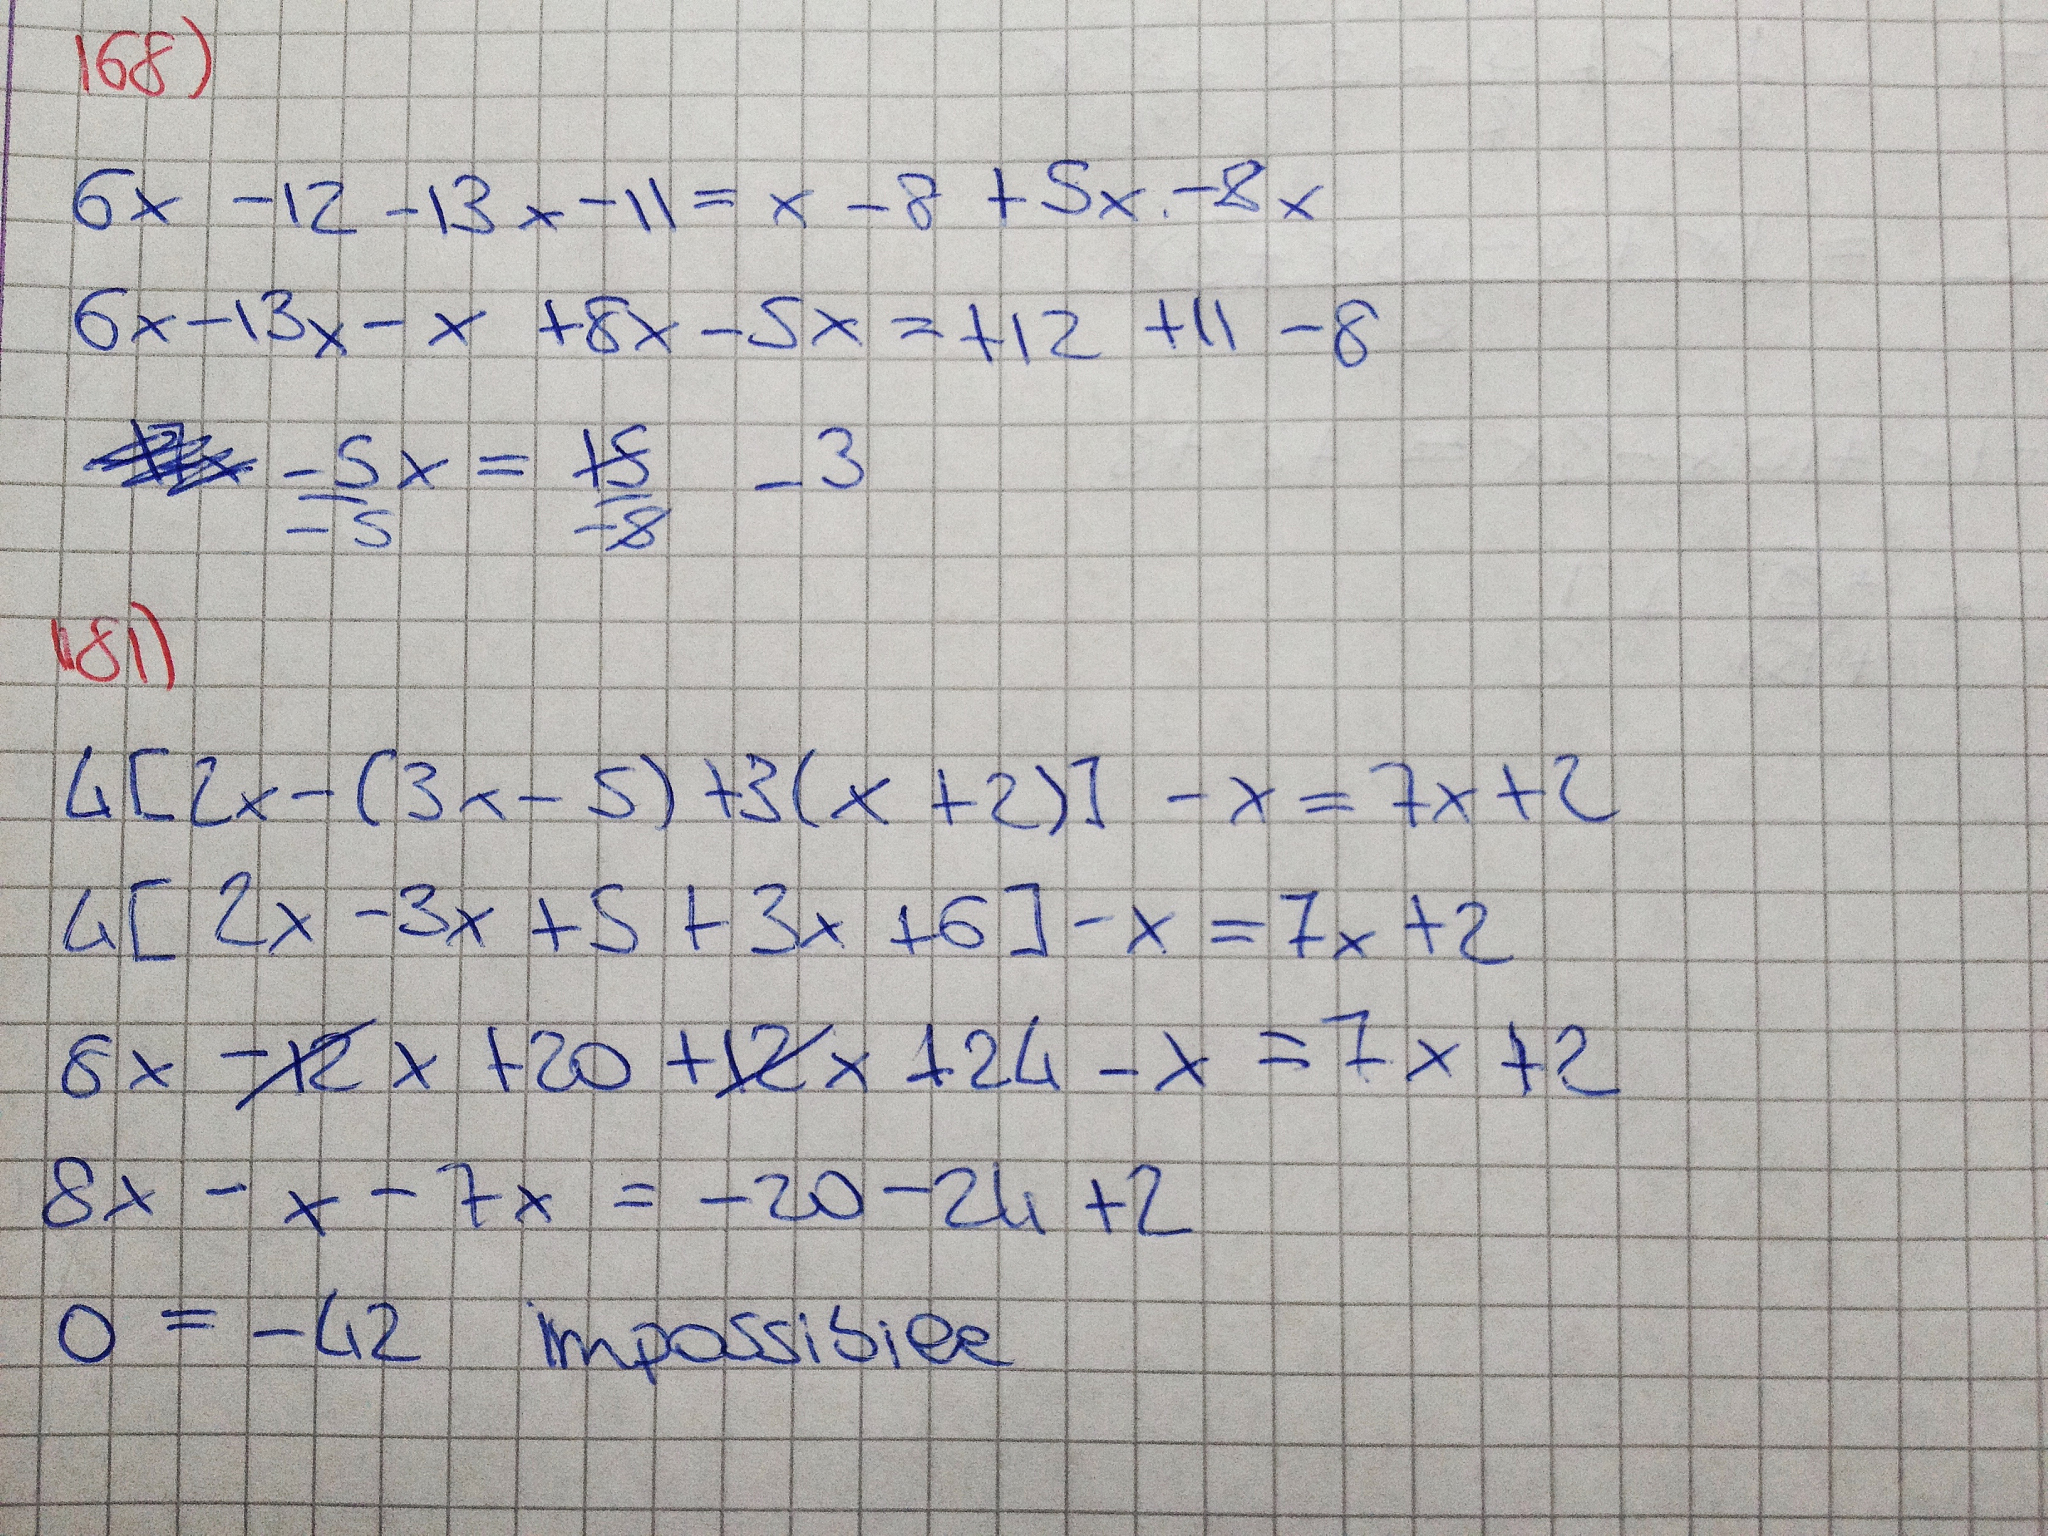 168)
6x -12 -13x -11 = x -8 +5x -8x
6x -13x - x +8x -5x = +12 +11 -8
-5x = +5 -3
-5 -8
181)
4[2x-(3x-5)+3(x+2)] -x = 7x+2
4[2x -3x +5 +3x +6] -x = 7x +2
8x -12x +20 +12x +24 -x = 7x +2
8x - x - 7x = -20 -24 +2
0 = -42 impossibile